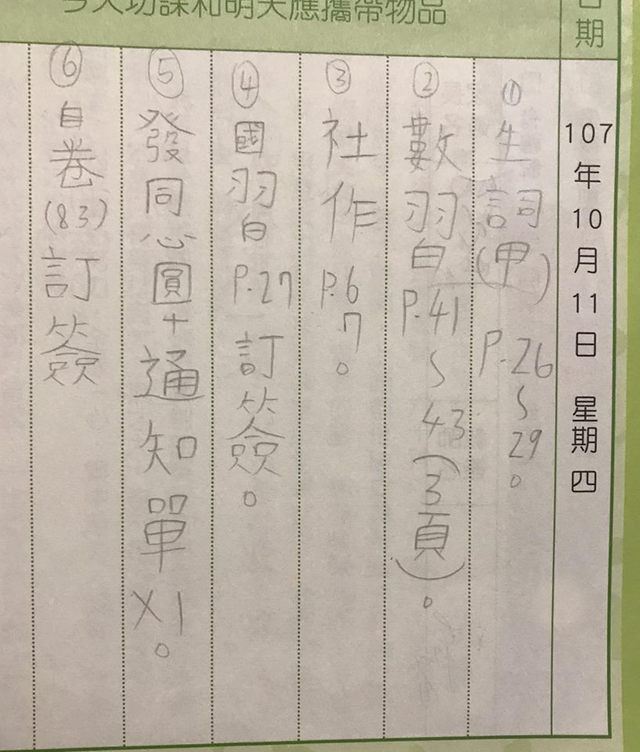 今天功課和明天應攜帶物品
日期
107年10月11日 星期四
①生詞(甲) P.26~29。
②數習P.41~43(3頁)。
③社作P.6 7。
④國習P.27訂簽。
⑤發同心圓+通知單X1。
⑥自卷(83)訂簽